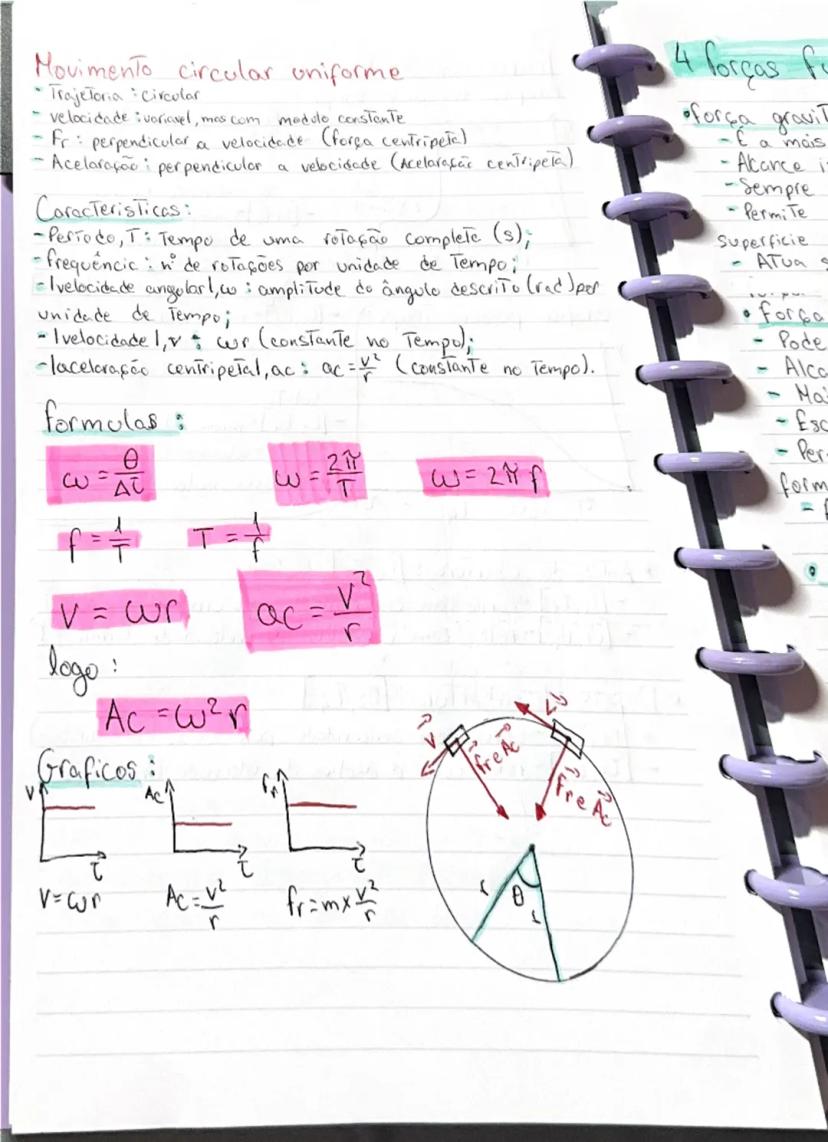 Movimento circular uniforme
- Trajetoria : circular
- velocidade : variavel, mas com modulo constante
- Fr : perpendicular a velocidade (força centripeta)
- Acelaração : perpendicular a velocidade (Acelaração centripeta)
Caracteristicas :
- Período, T : Tempo de uma rotação completa (s);
- frequência : nº de rotações por unidade de Tempo;
- |velocidade angular|, ω : amplitude do ângulo descrito (rad) por
unidade de Tempo;
- |velocidade|, v : ωr (constante no Tempo);
- |acelaração centripeta|, ac : ac = v²/r (constante no Tempo).
formulas :
ω = θ/Δt ω = 2π/T ω = 2π f
f = 1/T T = 1/f
V = ωr ac = V²/r
logo :
Ac = ω² r
Graficos :
V t Ac t Fr t
V = ωr Ac = v²/r fr = m × v²/r
V⃗ F⃗r e A⃗c
V⃗ F⃗r e A⃗c
r θ r
4 forças
• força gravit
- É a mais
- Alcance i
- Sempre
- Permite
superficie
- Atua s
• força
- Pode
- Alca
- Mai
- Esc
- Per
form